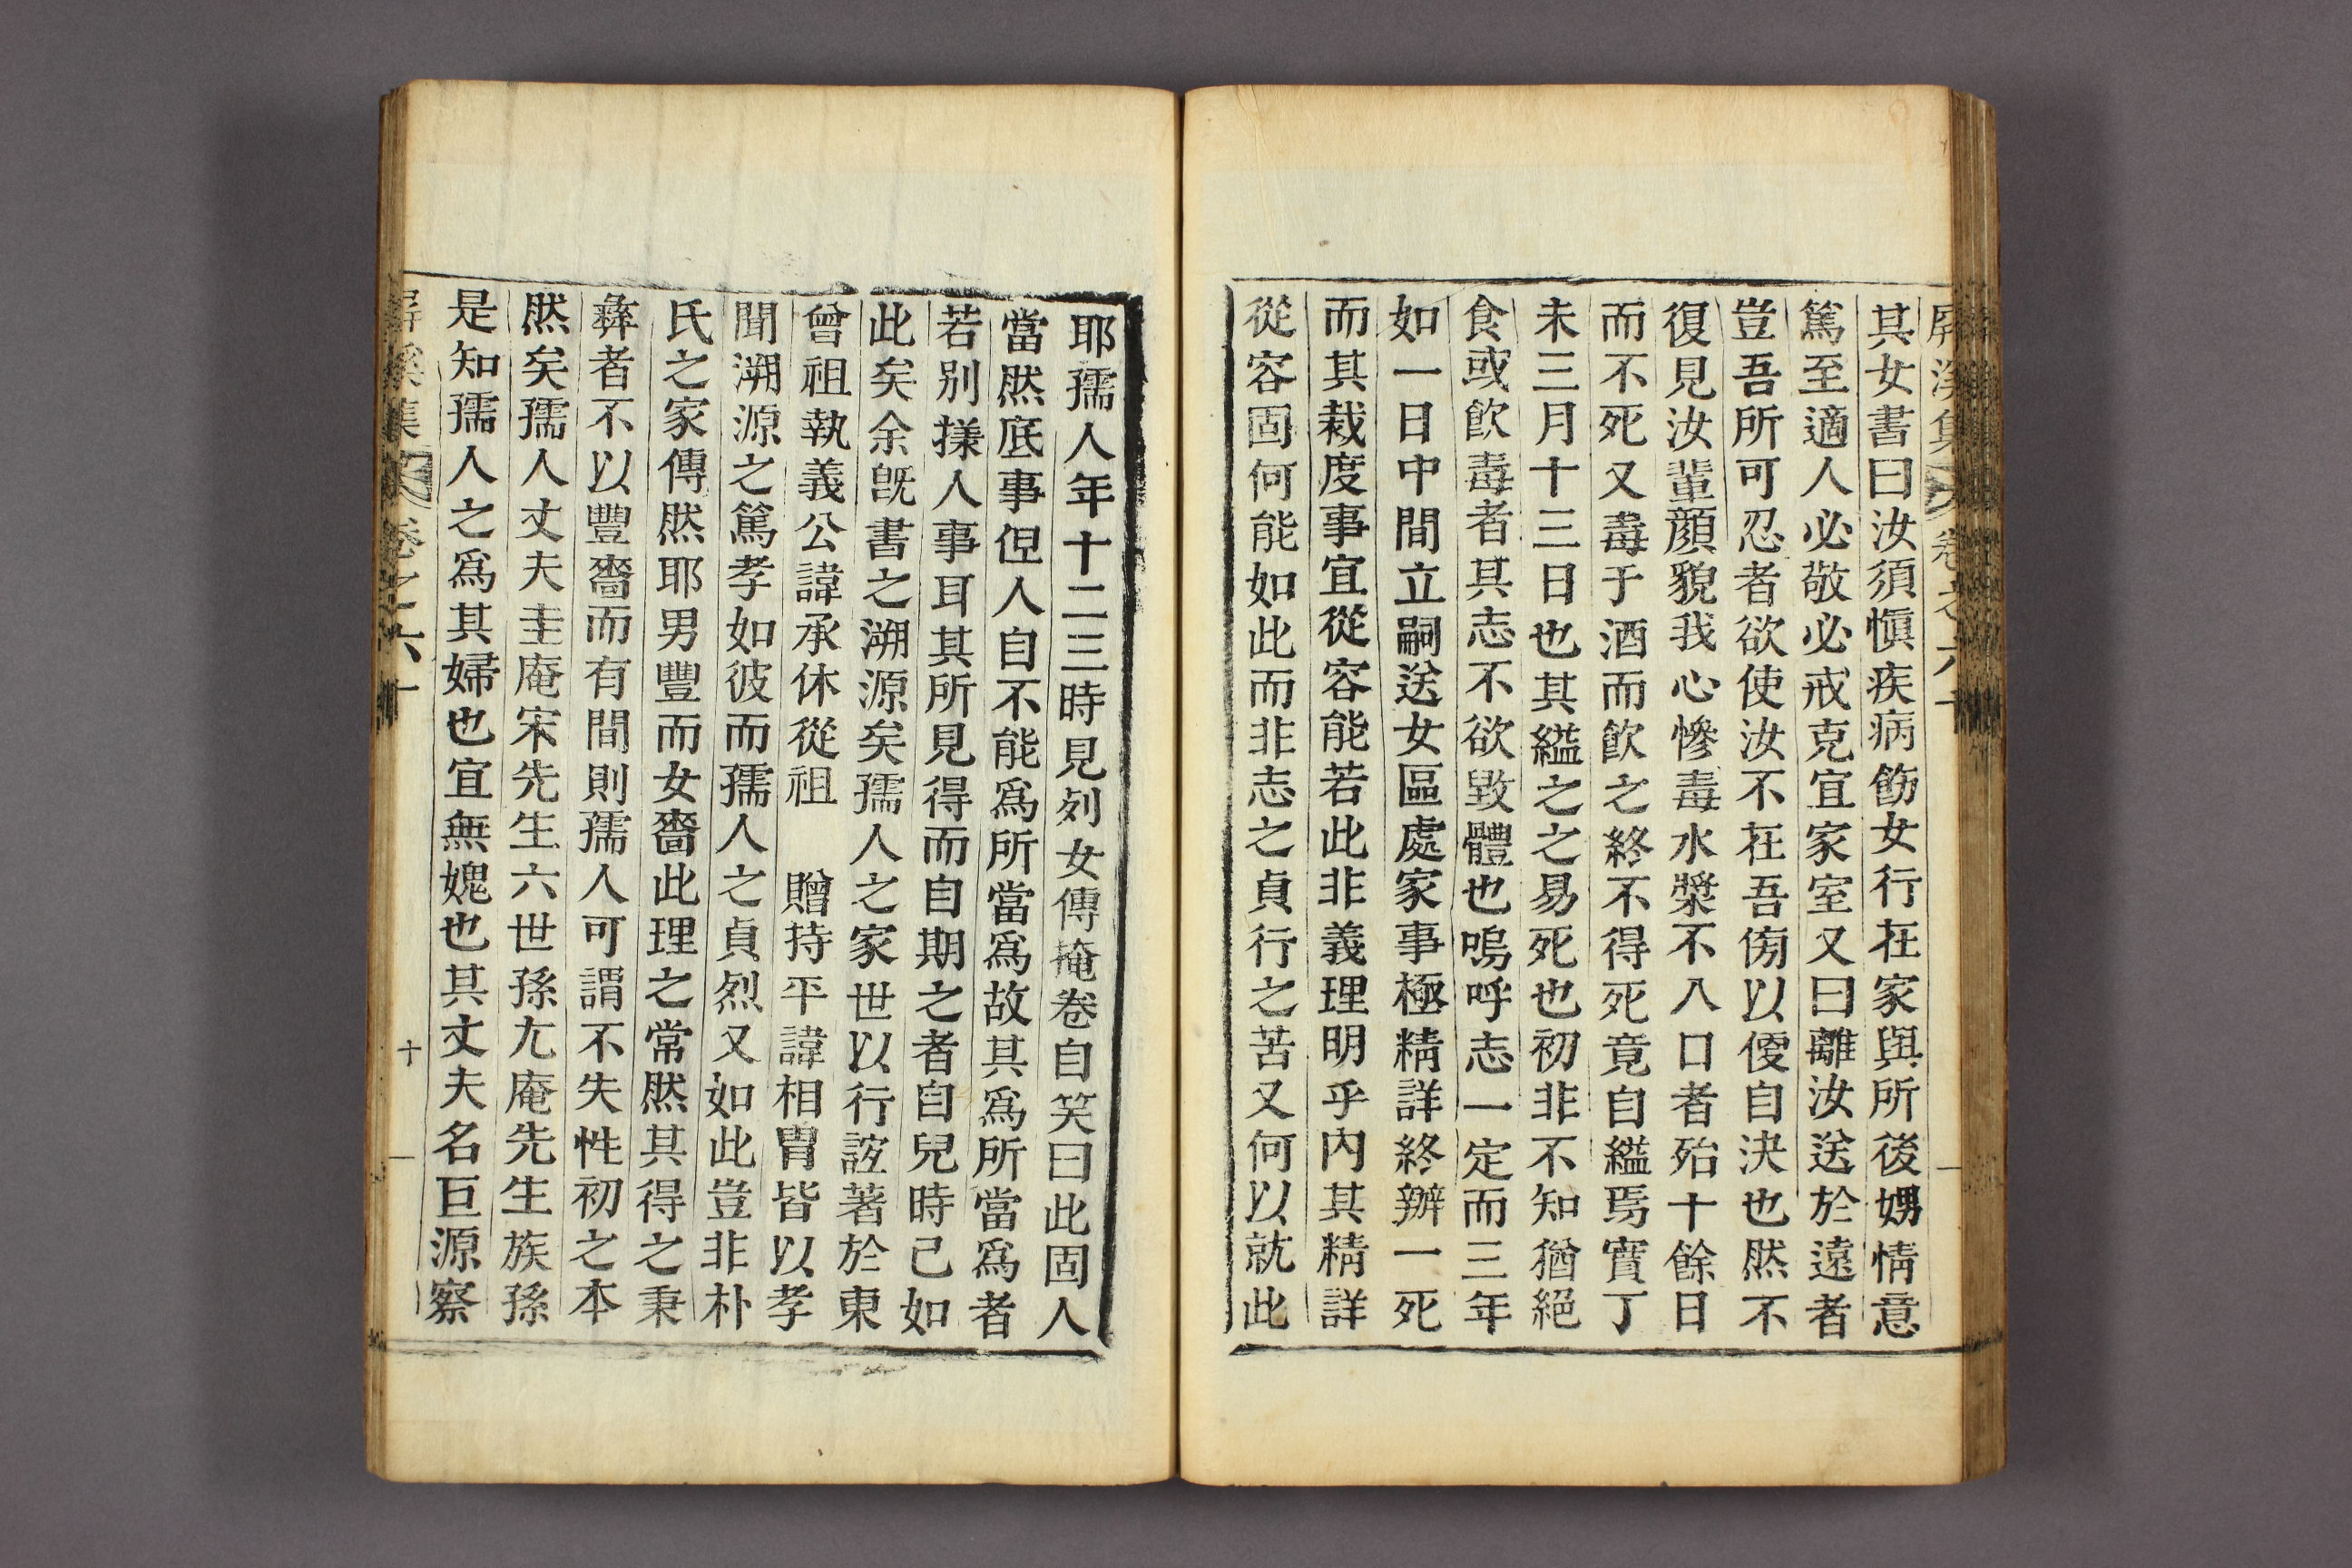 屛溪集 卷之六十
其女書曰汝須愼疾病飭女行在家與所後娚情意
篤至適人必敬必戒克宜家室又曰離汝送於遠者
豈吾所可忍者欲使汝不在吾傍以便自决也然不
復見汝輩顔貌我心慘毒水漿不入口者殆十餘日
而不死又毒于酒而飮之終不得死竟自縊焉實丁
未三月十三日也其縊之之易死也初非不知猶絕
食或飮毒者其志不欲毀體也嗚呼志一定而三年
如一日中間立嗣送女區處家事極精詳終辦一死
而其裁度事宜從容能若此非義理明乎內其精詳
從容固何能如此而非志之貞行之苦又何以就此
耶孺人年十二三時見列女傳掩卷自笑曰此固人
當然底事但人自不能爲所當爲故其爲所當爲者
若別㨾人事耳其所見得而自期之者自兒時已如
此矣余旣書之溯源矣孺人之家世以行誼著於東
曾祖執義公諱承休從祖 贈持平諱相胄皆以孝
聞溯源之篤孝如彼而孺人之貞烈又如此豈非朴
氏之家傳然耶男豐而女嗇此理之常然其得之秉
彝者不以豐嗇而有間則孺人可謂不失性初之本
然矣孺人丈夫圭庵宋先生六世孫尤庵先生族孫
是知孺人之爲其婦也宜無媿也其丈夫名巨源察
屛溪集 卷之六十 十一